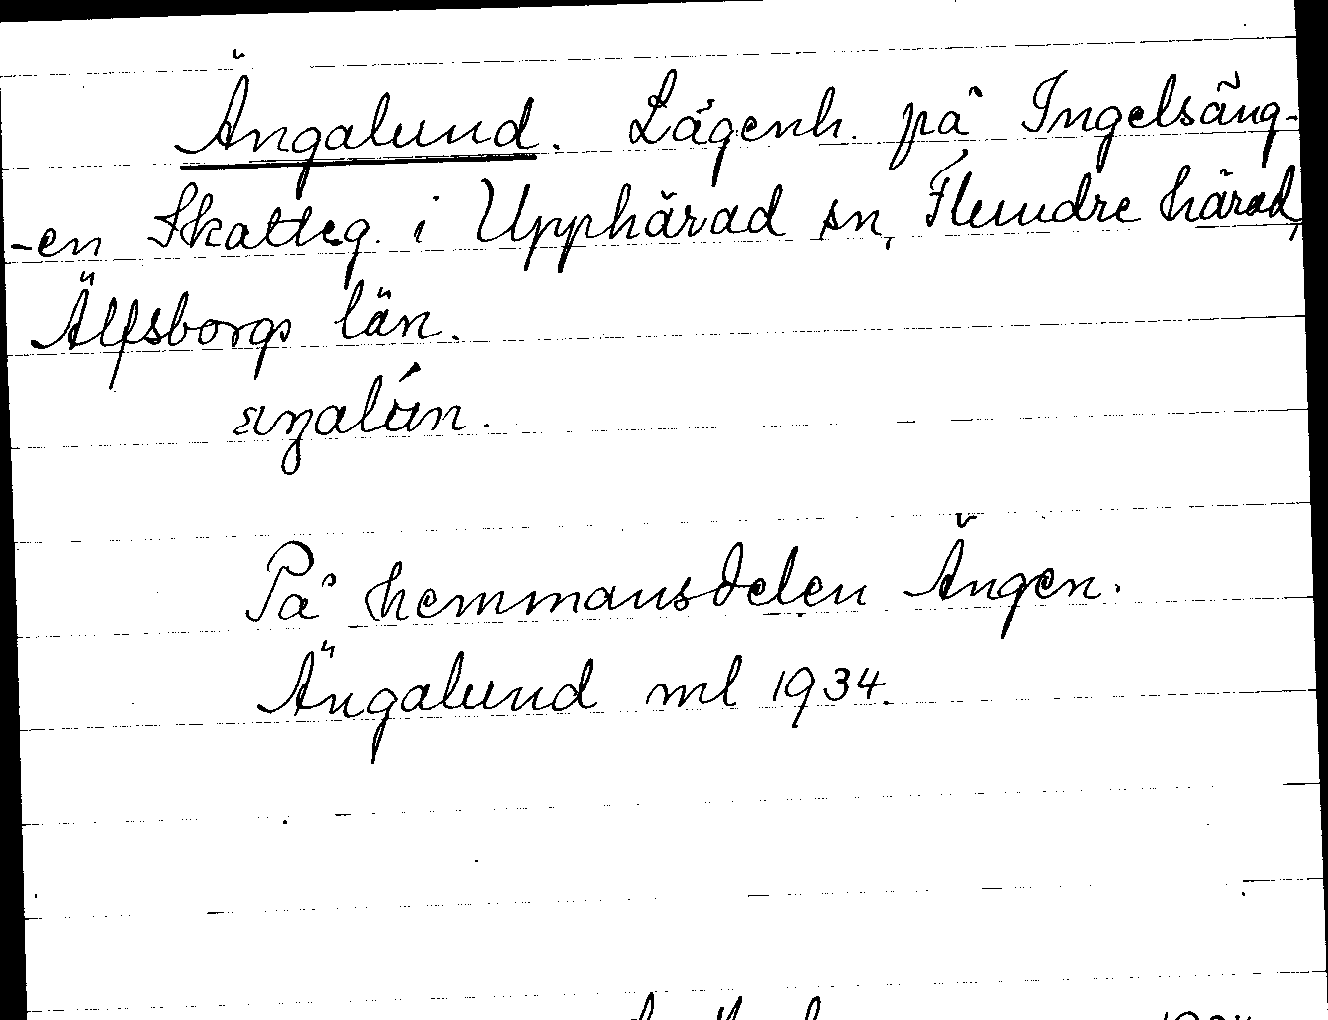 Ängalund. Lägenh. på Ingelsäng-
-en Skatteg. i Upphärad sn, Flundre härad,
Älfsborgs län.
På hemmansdelen Ängen.
Ängalund ml 1934.